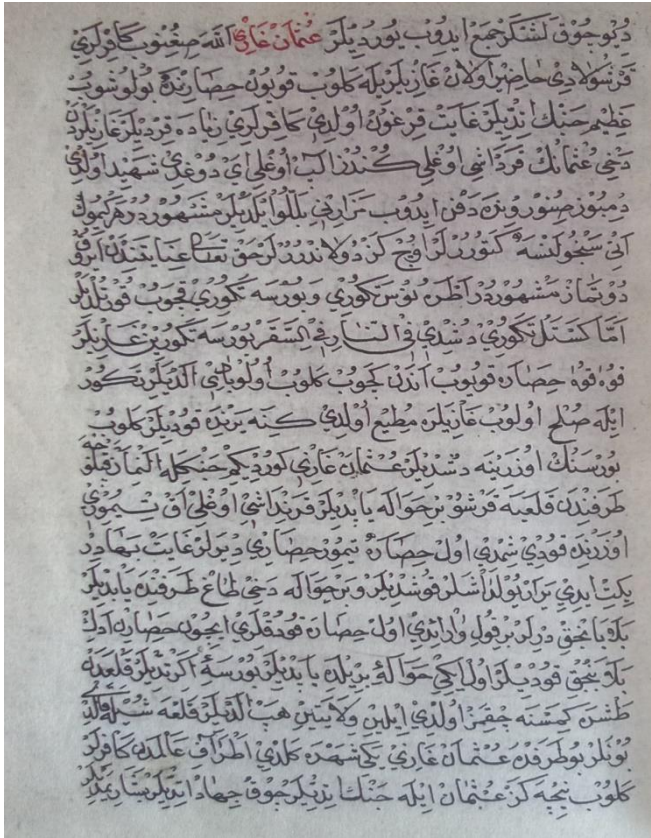 ديو چوق لشكر جمع ايدوب يورديلر عثمان غازى الله صغنوب كافرلرى
قرشولادى حاضر اولان غازيلر بله كلوب قويون حصارنده بولوشوب
عظيم جنك اتديلر غايت قرغون اولدى كافرلرى زياده قرديلر غازيلردن
دخى عثمانك قرداشى اوغلى كندز الب اوغلى اى دوغدى شهيد اولدى
ديمبوز صنورونده دفن ايدوب مزارنى بللو ايلديلر مشهوردر هر كيموك
آتى سنجولنسه كتورورلر اوچ كز دولاندررلر حق تعالى عنايتندن
دوتماز مشهوردر اطره نوس تكورى و بورسه تكورى قچوب قورتلديلر
اما كستل تكورى دشدى فى النار فى السقر بورسه تكورين غازيلر
قوه قوه حصاره قويوب آندن كچوب كلوب اولوباى الديلر تكور
ايله صلح اولوب غازيلره مطيع اولدى كنه يرنده قوديلر كلوب
بورسنك اوزرينه دشديلر عثمان غازى كورديكم جنكله آلنماز قپلوجه
طرفندن قلعيه قرشو بر حواله يابديلر قرنداشى اوغلى اق تيمورى
اوزرنده قودى شمدى اول حصاره تيمور حصارى ديرلر غايت بهادر
يكت ايدى يرار يولداشلر قوشديلر و بر حواله دخى طاغ طرفنده يابديلر
بلابانجق ديرلر بر قولى وار ايدى اول حصاره قودقلرى ايچون حصارن ادن
بلابنجق قوديلر اول ايكى حواله بر يلده يابديلر بورسه
طشره كيمسنه چقمز اولدى ايلين ولايتين هب الديلر قلعه شيله قالدى
بونلر بو طرفده عثمان غازى يكى شهرده كلدى اطراف عالمدن كافرلر
كلوب نيچه كز عثمان ايله جنك اتديلر چوق جهاد اتديلر